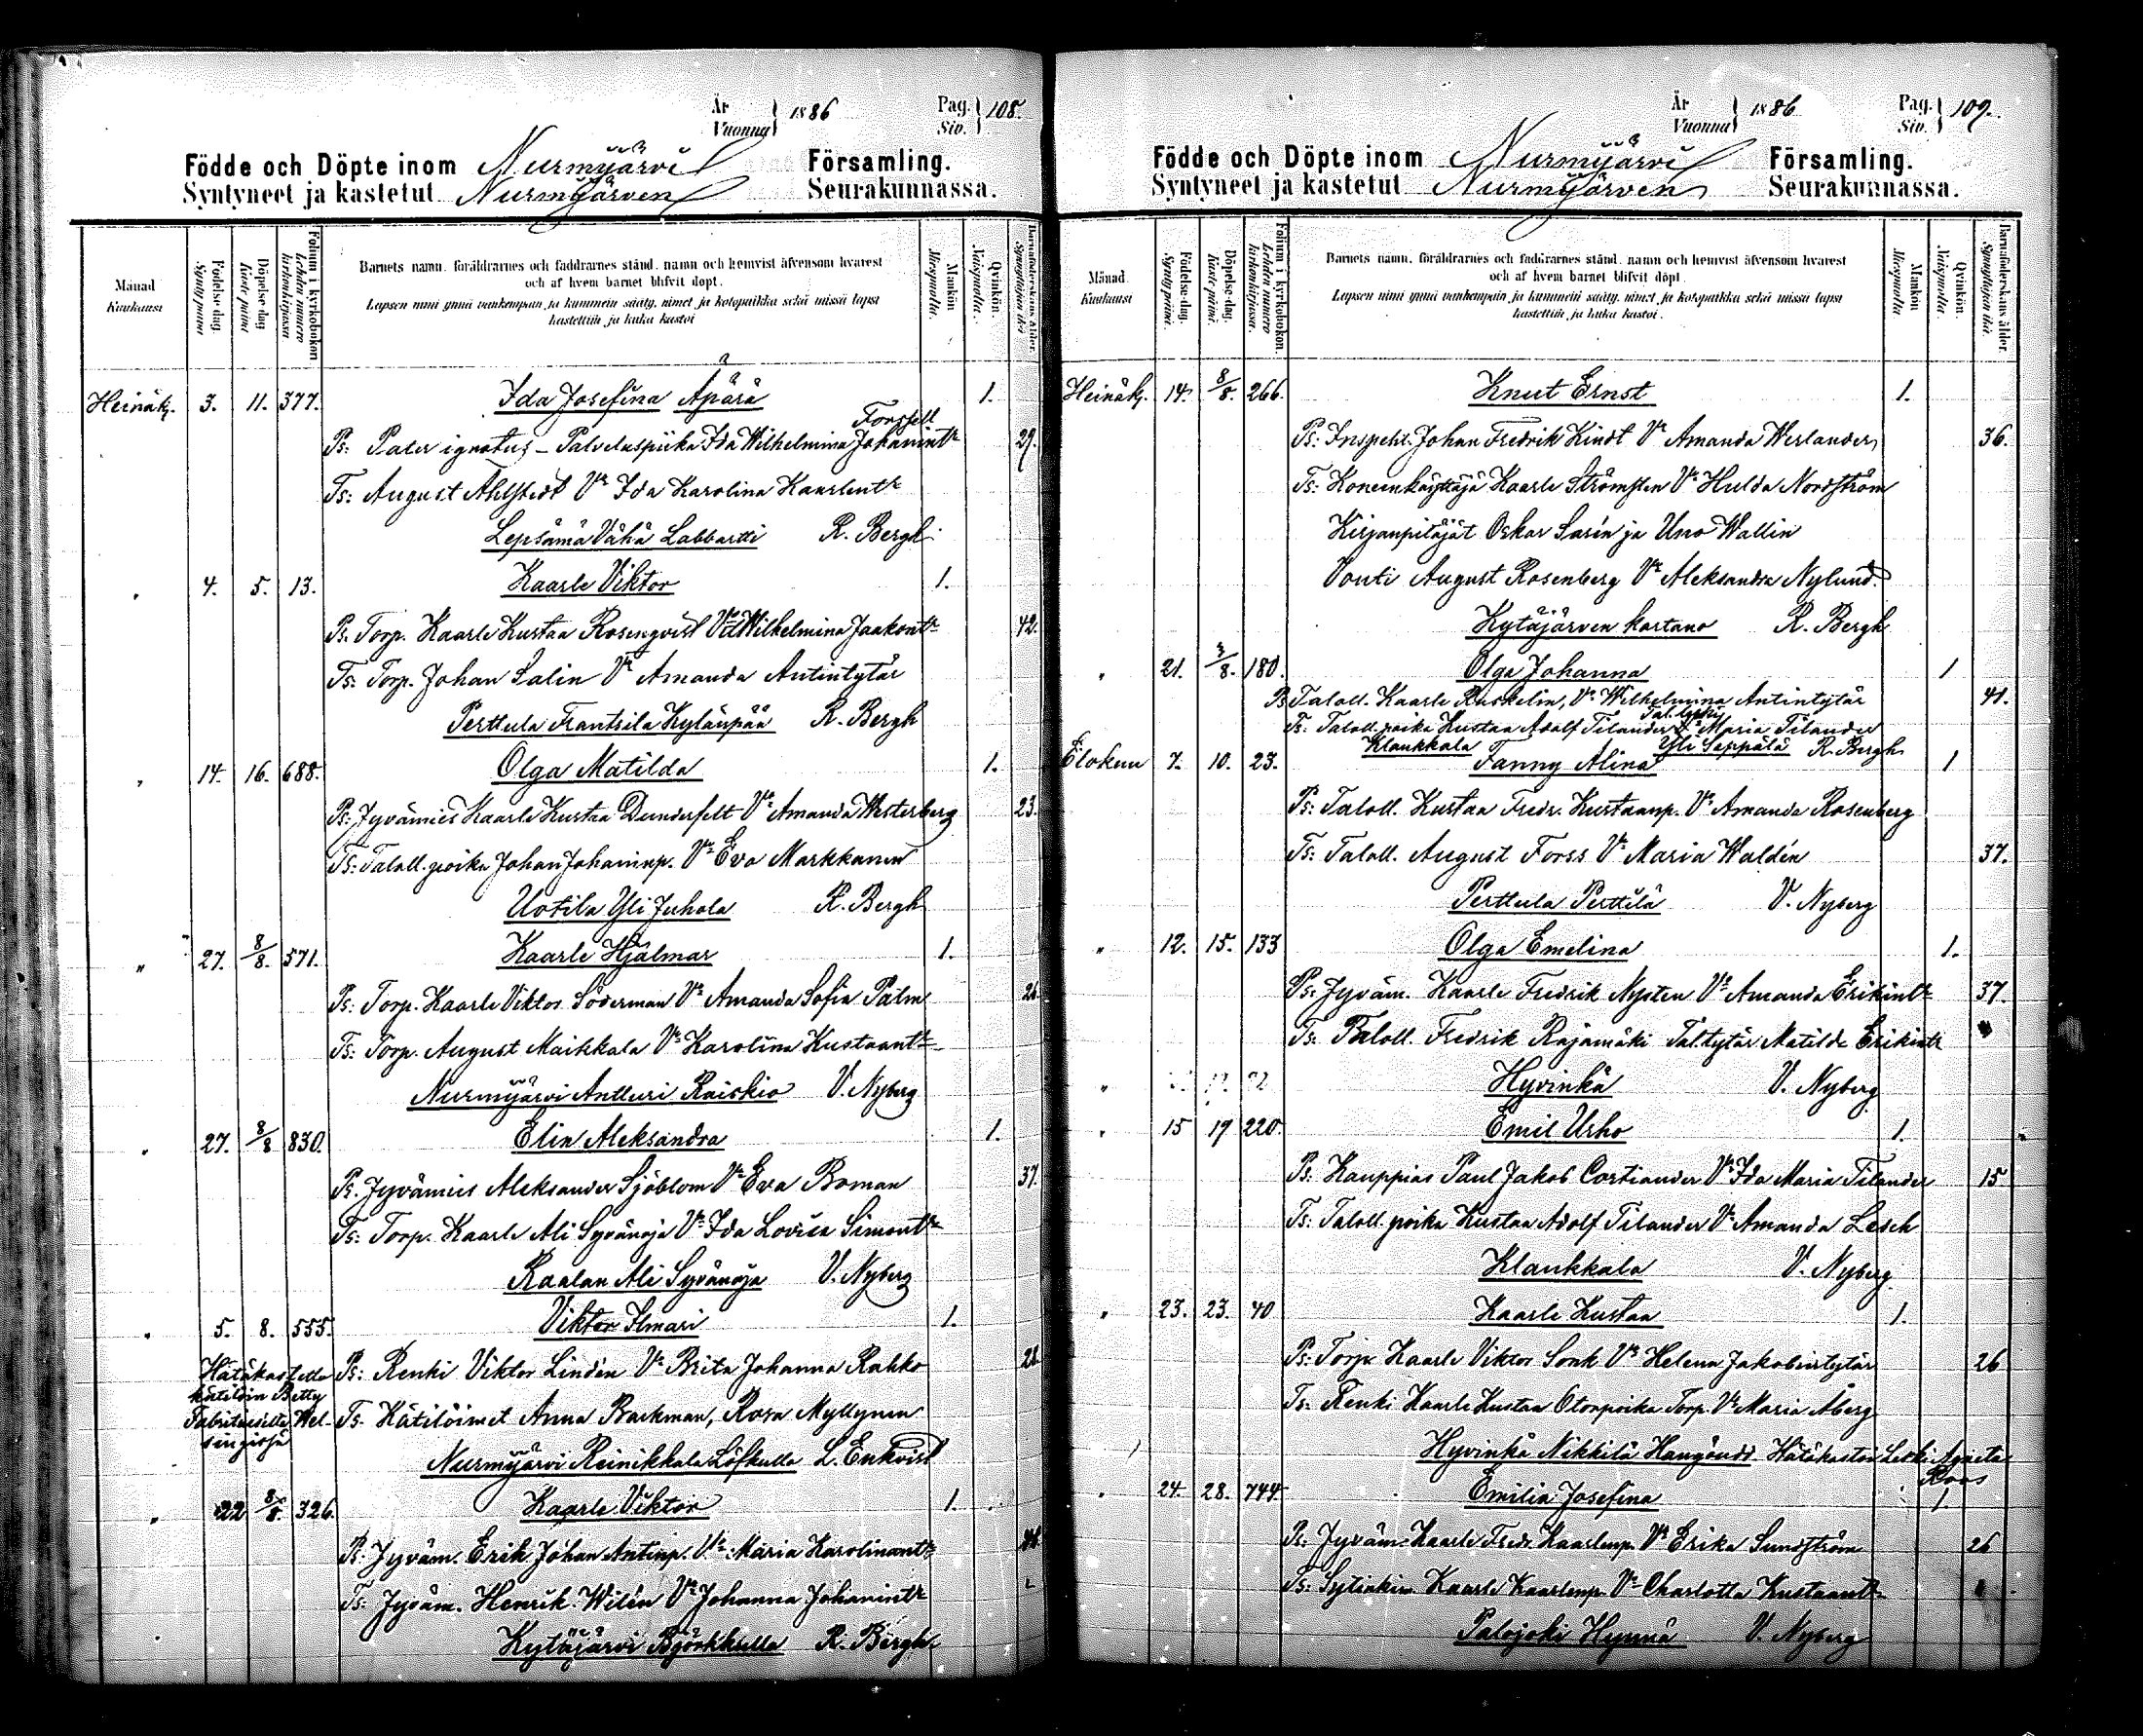 År
Vuonna } 1886
Pag.
Siv. } 108.
Födde och Döpte inom Nurmijärvi Församling.
Syntyneet ja kastetut Nurmijärven Seurakunnassa.
Månad
Kuukausi
Födelse-dag.
Synty päivä
Döpelse-dag
Kaste päivä
Folium i kyrkobokon
Lehden numero kirkonkirjassa
Barnets namn, föräldrarnes och faddrarnes stånd, namn och hemvist äfvensom hvarest
och af hvem barnet blifvit döpt.
Lapsen nimi ynnä vanhempain ja kummein sääty, nimet ja kotopaikka sekä missä lapsi
kastettiin ja kuka kastoi
Mankön
Miespuolta
Qvinkön.
Vaispuolta.
Barnaföderskans ålder.
Synnyttäjän ikä.
Heinäk. 3. 11. 377. Ida Josefina Äpärä 1.
Forssell
Ps: Pater ignotus – Palveluspiika Ida Wilhelmina Johanintr 29.
Ts: August Ahlstedt Vo Ida Karolina Kaarlentr
Lepsämä Vähä Labbartti R. Bergh
" 4. 5. 13. Kaarle Viktor 1.
Ps: Torp. Kaarle Kustaa Rosenqvist Vo Wilhelmina Jaakontr 42.
Ts: Torp. Johan Salin Vo Amanda Antintytär
Perttula Frantsila Kylänpää R. Bergh
" 14. 16. 688. Olga Matilda 1.
Ps: Jyvämies Kaarle Kustaa Dunderfelt Vo Amanda Westerberg 23.
Ts: Taloll. poika Johan Johaninp. Vo Eva Markkanen
Uotila Yli Juhola R. Bergh
" 27. 8/8. 571. Kaarle Hjalmar 1.
Ps: Torp. Kaarle Viktor Söderman Vo Amanda Sofia Palm
Ts: Torp. August Maikkala Vo Karolina Kustaantr
Nurmijärvi Antturi Raiskio V. Nyberg
" 27. 8/8 830. Elin Aleksandra 1.
Ps. Jyvämies Aleksander Sjöblom Vo Eva Boman 37.
Ts: Torp. Kaarle Ali Syvänoja Vo Ida Lovisa Simontr
Raalan Ali Syvänoja V. Nyberg
" 5. 8. 555. Viktor Ilmari 1.
Hätäkastettu Ps: Renki Viktor Lindén Vo Brita Johanna Rahko
kätilöin Betty
Ts. Kätilöimet Anna Backman, Rosa Myllynen
Nurmijärvi Reinikkala Löfkulla L. Enkvist
" 22 8/8. 326. Kaarle Viktor 1.
Ps: Jyväm. Erik Johan Antinp. Vo Maria Karolinantr
Ts: Jyväm. Henrik Wilén Vo Johanna Johanintr
Kytäjärvi Björkkulla R. Bergh
År
Vuonna } 1886
Pag.
Siv. } 109.
Födde och Döpte inom Nurmijärvi Församling.
Syntyneet ja kastetut Nurmijärven Seurakunnassa.
Månad
Kuukausi
Födelse-dag.
Synty päivä.
Döpelse-dag.
Kaste päivä.
Folium i kyrkobokon.
Lehden numero kirkonkirjassa.
Barnets namn, föräldrarnes och faddrarnes stånd, namn och hemvist äfvensom hvarest
och af hvem barnet blifvit döpt.
Lapsen nimi ynnä vanhempain ja kummein sääty, nimet ja kotopaikka sekä missä lapsi
kastettiin ja kuka kastoi.
Mankön
Miespuolta
Qvinkön.
Vaispuolta.
Barnaföderskans ålder.
Synnyttäjän ikä.
Heinäk. 14. 8/8. 266. Knut Ernst 1.
Ps: Inspeht. Johan Fredrik Kindt Vo Amanda Werlander 36.
Ts: Koneenkäyttäjä Kaarle Strömsten Vo Hulda Nordström
Kirjanpitäjät Oskar Sarén ja Uno Wallin
Vouti August Rosenberg Vo Aleksandra Nylund.
Kytäjärven kartano R. Bergh
" 21. 3/8. 180. Olga Johanna 1
Ps Taloll. Kaarle Ruskelin, Vo Wilhelmina Antintytär 41.
Ts: Taloll. poika Kustaa Adolf Tilander Maria Tilander
Klaukkala Yli Seppälä R. Bergh
Elokuu 7. 10. 23. Fanny Alina 1
Ps: Taloll. Kustaa Fredr. Kustaanp. Vo Amanda Rosenberg
Ts: Taloll. August Forss Vo Maria Waldén 37.
Perttula Perttilä V. Nyberg
" 12. 15. 133 Olga Emelina 1.
Ps: Jyväm. Kaarle Fredrik Nysten Vo Amanda Erikintr 37.
Ts: Taloll. Fredrik Rajamäki Tal.tytär Matilda Erikintr
Hyvinkä V. Nyberg
" 15 19 220. Emil Urho 1.
Ps: Kauppias Paul Jakob Cortiander Vo Ida Maria Tilander 15
Ts: Taloll. poika Kustaa Adolf Tilander Vo Amanda Lesch
Klaukkala V. Nyberg
" 23. 23. 40 Kaarle Kustaa 1.
Ps: Torp. Kaarle Viktor Sonk Vo Helena Jakobintytär 26
Ts: Renki Kaarle Kustaa Otonpoika Torp. Vo Maria Åberg
Hyvinkä Nikkilä Hätäkastoi Leski Agneta
Roos
" 24. 28. 744. Emilia Josefina 1.
Ps: Jyväm. Kaarle Fredr. Kaarlenp. Vo Erika Sundström 26
Ts: Kaarle Kaarlenp. Vo Charlotta Kustaantr
Palojoki Hynnä V. Nyberg